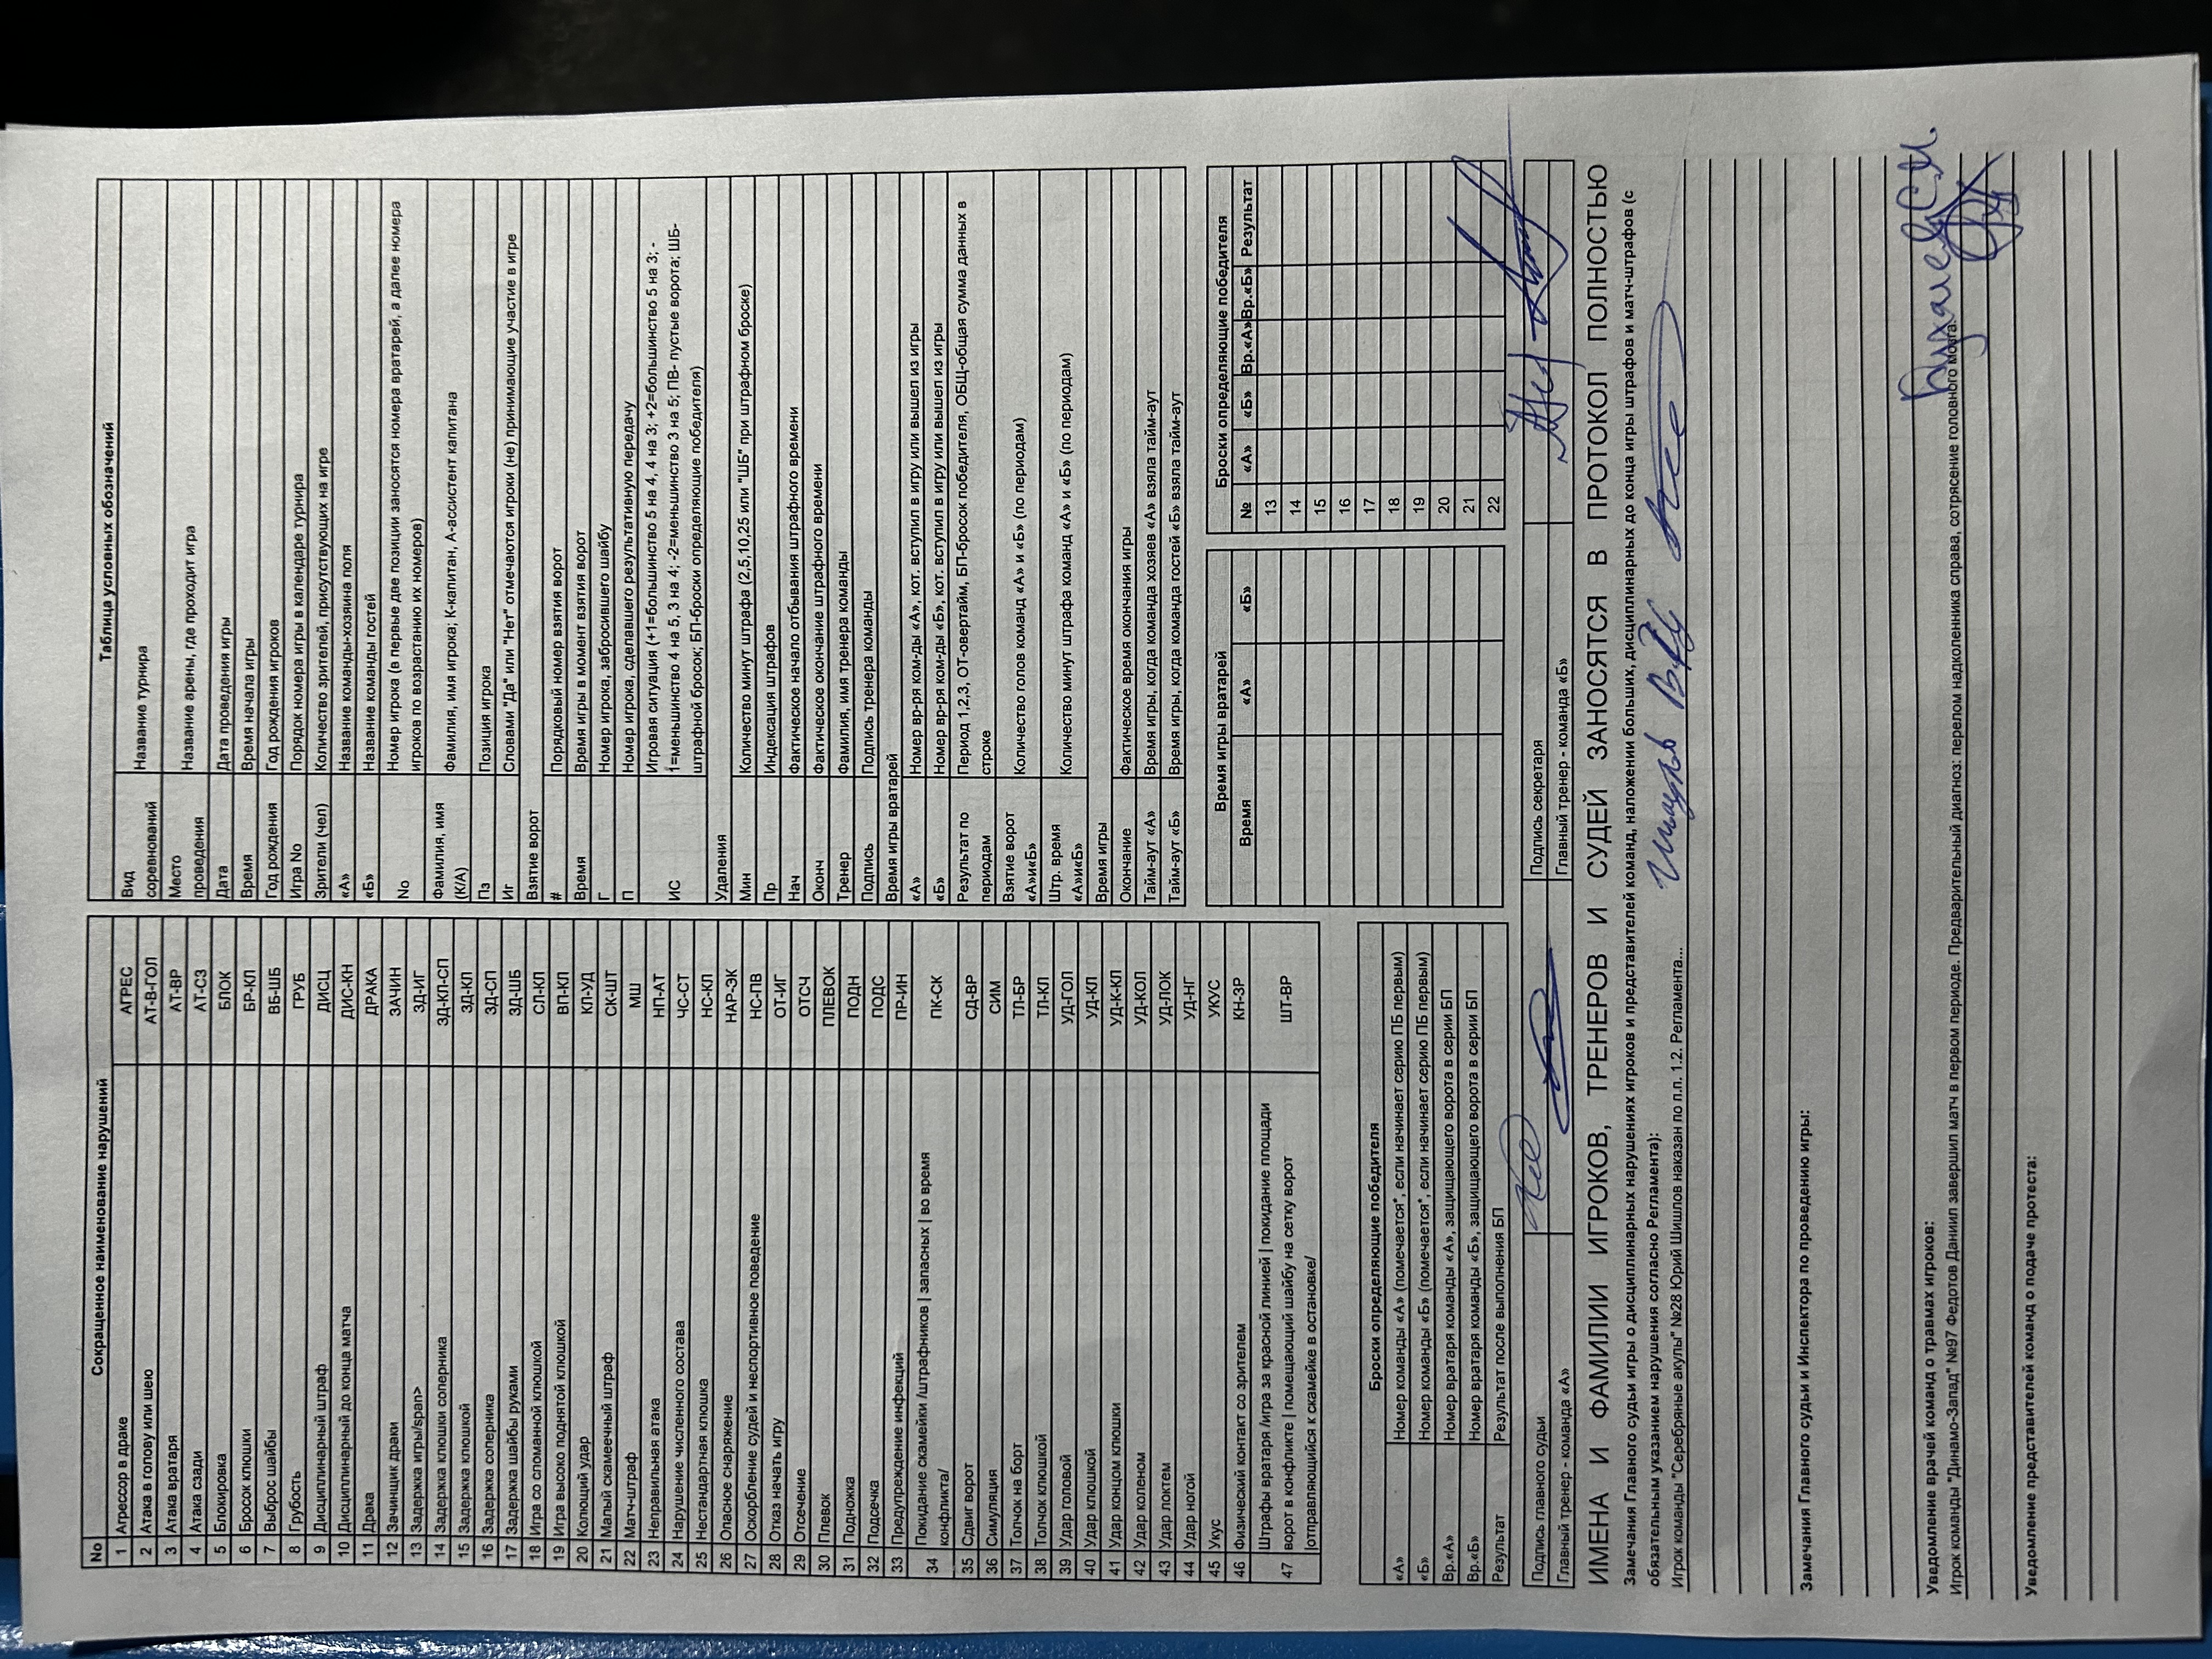 Сокращенное наименование нарушений
No
1 Агрессор в драке АГРЕС
2 Атака в голову или шею АТ-В-ГОЛ
3 Атака вратаря АТ-ВР
4 Атака сзади АТ-СЗ
5 Блокировка БЛОК
6 Бросок клюшки БР-КЛ
7 Выброс шайбы ВБ-ШБ
8 Грубость ГРУБ
9 Дисциплинарный штраф ДИСЦ
10 Дисциплинарный до конца матча ДИС-КН
11 Драка ДРАКА
12 Зачинщик драки ЗАЧИН
13 Задержка игры/span> ЗД-ИГ
14 Задержка клюшки соперника ЗД-КЛ-СП
15 Задержка клюшкой ЗД-КЛ
16 Задержка соперника ЗД-СП
17 Задержка шайбы руками ЗД-ШБ
18 Игра со сломанной клюшкой СЛ-КЛ
19 Игра высоко поднятой клюшкой ВП-КЛ
20 Колющий удар КЛ-УД
21 Малый скамеечный штраф СК-ШТ
22 Матч-штраф МШ
23 Неправильная атака НП-АТ
24 Нарушение численного состава ЧС-СТ
25 Нестандартная клюшка НС-КЛ
26 Опасное снаряжение НАР-ЭК
27 Оскорбление судей и неспортивное поведение НС-ПВ
28 Отказ начать игру ОТ-ИГ
29 Отсечение ОТСЧ
30 Плевок ПЛЕВОК
31 Подножка ПОДН
32 Подсечка ПОДС
33 Предупреждение инфекций ПР-ИН
34 Покидание скамейки /штрафников | запасных | во время ПК-СК
конфликта/
35 Сдвиг ворот СД-ВР
36 Симуляция СИМ
37 Толчок на борт ТЛ-БР
38 Толчок клюшкой ТЛ-КЛ
39 Удар головой УД-ГОЛ
40 Удар клюшкой УД-КЛ
41 Удар концом клюшки УД-К-КЛ
42 Удар коленом УД-КОЛ
43 Удар локтем УД-ЛОК
44 Удар ногой УД-НГ
45 Укус УКУС
46 Физический контакт со зрителем КН-ЗР
Штрафы вратаря /игра за красной линией | покидание площади
47 ворот в конфликте | помещающий шайбу на сетку ворот ШТ-ВР
|отправляющийся к скамейке в остановке/
Таблица условных обозначений
Вид
соревнований Название турнира
Место
проведения Название арены, где проходит игра
Дата Дата проведения игры
Время Время начала игры
Год рождения Год рождения игроков
Игра No Порядок номера игры в календаре турнира
Зрители (чел) Количество зрителей, присутствующих на игре
«А» Название команды-хозяина поля
«Б» Название команды гостей
No Номер игрока (в первые две позиции заносятся номера вратарей, а далее номера
игроков по возрастанию их номеров)
Фамилия, имя
(К/А) Фамилия, имя игрока; К-капитан, А-ассистент капитана
Пз Позиция игрока
Иг Словами "Да" или "Нет" отмечаются игроки (не) принимающие участие в игре
Взятие ворот
# Порядковый номер взятия ворот
Время Время игры в момент взятия ворот
Г Номер игрока, забросившего шайбу
П Номер игрока, сделавшего результативную передачу
Игровая ситуация (+1=большинство 5 на 4, 4 на 3; +2=большинство 5 на 3; -
ИС 1=меньшинство 4 на 5, 3 на 4; -2=меньшинство 3 на 5; ПВ- пустые ворота; ШБ-
штрафной бросок; БП-броски определяющие победителя)
Удаления
Мин Количество минут штрафа (2,5,10,25 или "ШБ" при штрафном броске)
Пр Индексация штрафов
Нач Фактическое начало отбывания штрафного времени
Оконч Фактическое окончание штрафного времени
Тренер Фамилия, имя тренера команды
Подпись Подпись тренера команды
Время игры вратарей
«А» Номер вр-ря ком-ды «А», кот. вступил в игру или вышел из игры
«Б» Номер вр-ря ком-ды «Б», кот. вступил в игру или вышел из игры
Результат по Период 1,2,3, ОТ-овертайм, БП-бросок победителя, ОБЩ-общая сумма данных в
периодам строке
Взятие ворот
«А»и«Б» Количество голов команд «А» и «Б» (по периодам)
Штр. время
«А»и«Б» Количество минут штрафа команд «А» и «Б» (по периодам)
Время игры
Окончание Фактическое время окончания игры
Тайм-аут «А» Время игры, когда команда хозяев «А» взяла тайм-аут
Тайм-аут «Б» Время игры, когда команда гостей «Б» взяла тайм-аут
Броски определяющие победителя
«А» Номер команды «А» (помечается*, если начинает серию ПБ первым)
«Б» Номер команды «Б» (помечается*, если начинает серию ПБ первым)
Вр.«А» Номер вратаря команды «А», защищающего ворота в серии БП
Вр.«Б» Номер вратаря команды «Б», защищающего ворота в серии БП
Результат Результат после выполнения БП
Время игры вратарей
Время «А» «Б»
Броски определяющие победителя
№ «А» «Б» Вр.«А» Вр.«Б» Результат
13
14
15
16
17
18
19
20
21
22
Подпись главного судьи Подпись секретаря
Главный тренер - команда «А» Главный тренер - команда «Б»
ИМЕНА И ФАМИЛИИ ИГРОКОВ, ТРЕНЕРОВ И СУДЕЙ ЗАНОСЯТСЯ В ПРОТОКОЛ ПОЛНОСТЬЮ
Замечания Главного судьи игры о дисциплинарных нарушениях игроков и представителей команд, наложении больших, дисциплинарных до конца игры штрафов и матч-штрафов (с
обязательным указанием нарушения согласно Регламента):
Игрок команды "Серебряные акулы" №28 Юрий Шишлов наказан по п.п. 1.2. Регламента...
Замечания Главного судьи и Инспектора по проведению игры:
Уведомление врачей команд о травмах игроков:
Игрок команды "Динамо-Запад" №97 Федотов Даниил завершил матч в первом периоде. Предварительный диагноз: перелом надколенника справа, сотрясение головного мозга.
Уведомление представителей команд о подаче протеста: